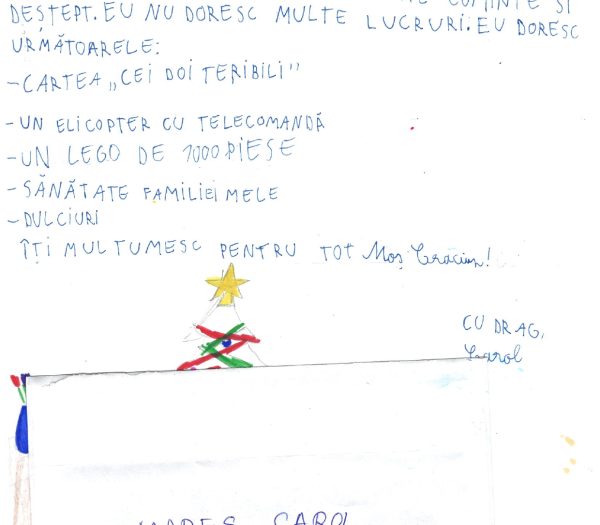 CUMINTE ȘI
DEȘTEPT. EU NU DORESC MULTE LUCRURI. EU DORESC
URMĂTOARELE:
-CARTEA „CEI DOI TERIBILI"
-UN ELICOPTER CU TELECOMANDĂ
-UN LEGO DE 1000 PIESE
-SĂNĂTATE FAMILIEI MELE
-DULCIURI
ÎȚI MULTUMESC PENTRU TOT Moș Crăciun!
CU DRAG,
Carol
CAROL